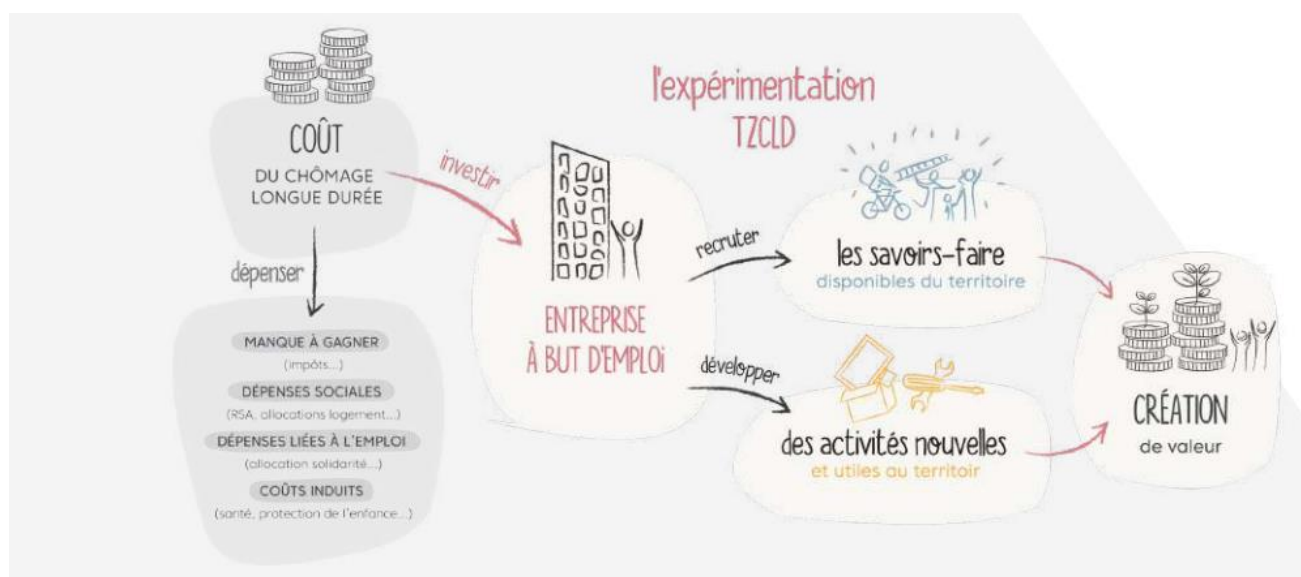 l'expérimentation
TZCLD
COÛT
DU CHÔMAGE
LONGUE DURÉE
investir
dépenser
MANQUE À GAGNER
(impôts...)
DÉPENSES SOCIALES
(RSA, allocations logement...)
DÉPENSES LIÉES À L'EMPLOI
(allocation solidarité...)
COÛTS INDUITS
(santé, protection de l'enfance...)
ENTREPRISE
À BUT D'EMPLOi
recruter
les savoirs-faire
disponibles du territoire
développer
des activités nouvelles
et utiles au territoir
CRÉATION
de valeur